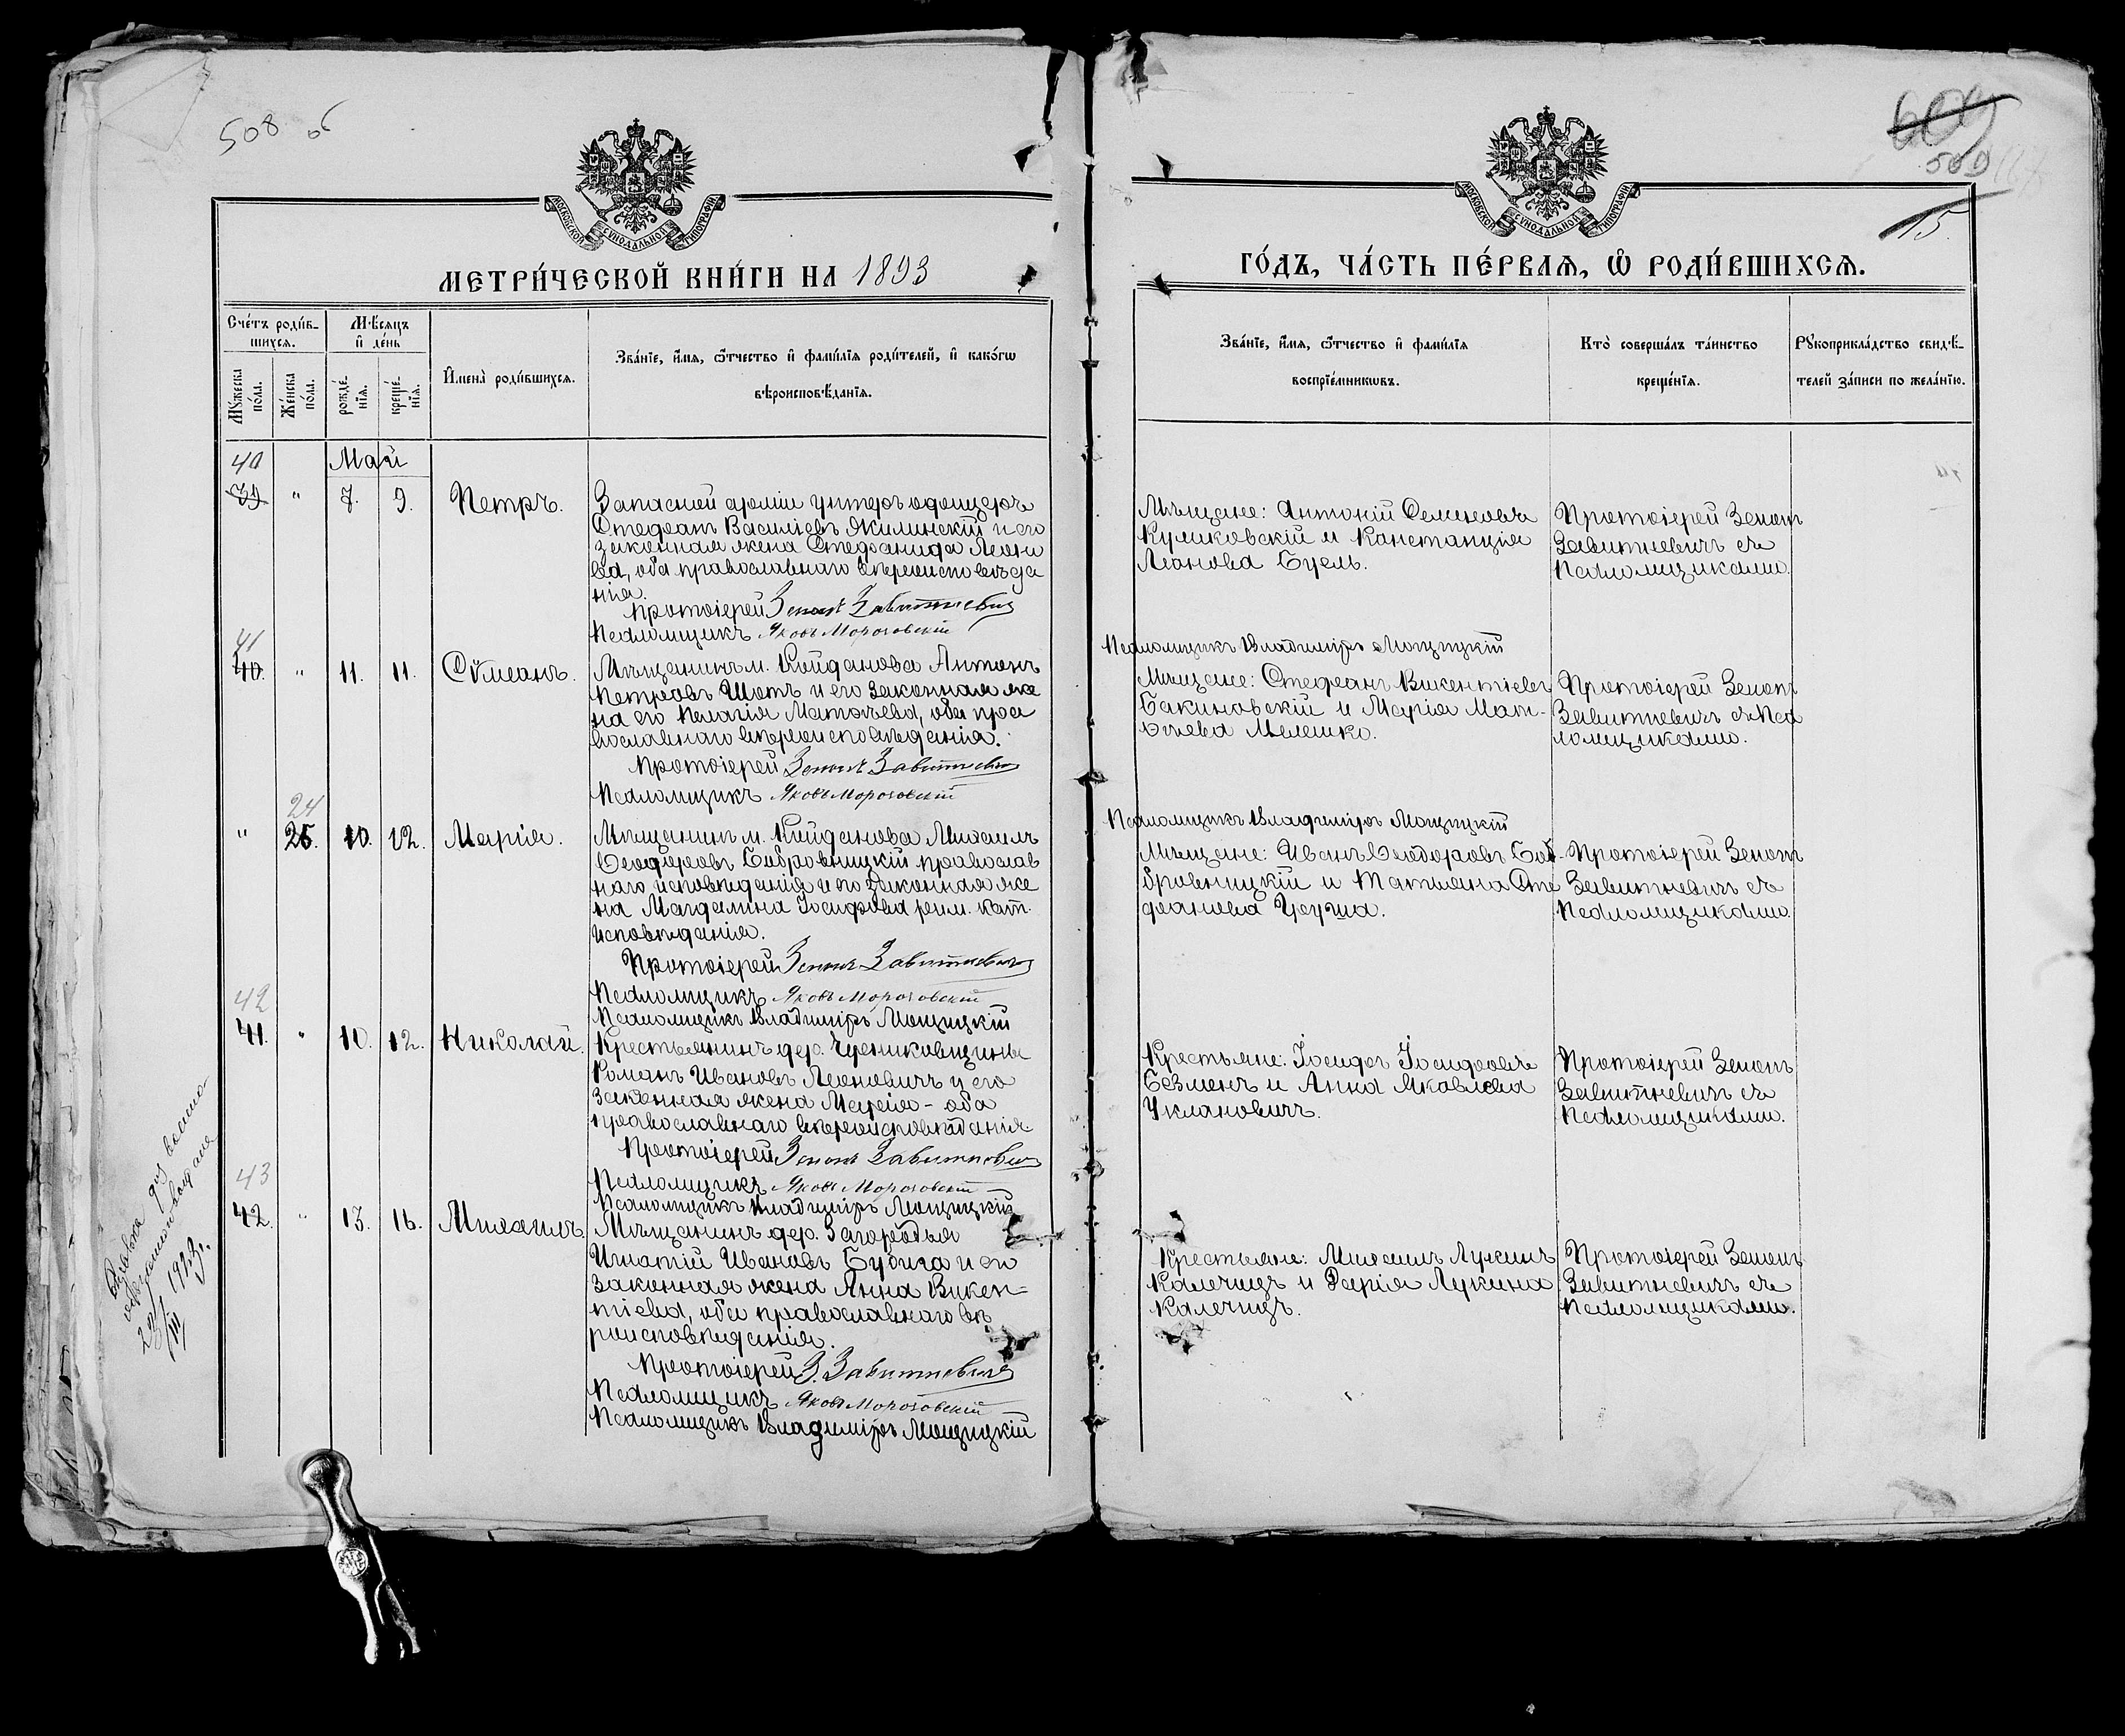 508 об
МОСКОВСКОЙ СѴНОДАЛЬНОЙ ТИПОГРАФІИ
МЕТРИ́ЧЕСКОЙ КНИ́ГИ НА 1893
Сче́тъ роди́в-
шихся.
Мѣ́сяцъ
и҆ де́нь
И҆мена̀ роди́вшихся.
Зва́нїе, и҆́мя, ѻ҆́тчество и҆ фами́лїя роди́телей, и҆ како́гѡ
вѣроисповѣ́данїя.
Мꙋ́жеска
по́ла.
Же́нска
по́ла.
рожде́-
нїя.
креще́-
нїя.
40
Май
39
"
7.
9.
Петръ.
Запасной арміи унтеръ офицеръ
Стефанъ Василіевъ Якимискій и его
законная жена Стефанида Леоно
ва, оба православнаго вѣроисповѣда
нія.
Протоіерей Зенонъ Завитневичъ
Псаломщикъ Яковъ Морозовскій
41
40.
"
11.
11.
Сѵмеонъ.
Мѣщанинъ м. Койданова Антонъ
Петровъ Шотъ и его законная же
на его Пелагія Матѳеева, оба пра
вославнаго вѣроисповѣданія.
Протоіерей Зенонъ Завитневичъ
Псаломщикъ Яковъ Морозовскій
24
"
25.
10.
12.
Марія.
Мѣщанинъ м. Койданова Михаилъ
Ѳеодоровъ Бобровницкій православ
наго исповѣданія и его законная же
на Магдалина Іосифова рим. кат.
исповѣданія.
Протоіерей Зенонъ Завитневичъ
Псаломщикъ Яковъ Морозовскій
Псаломщикъ Владиміръ Мощицкій
42
41.
"
10.
12.
Николай.
Крестьянинъ дер.
Романъ Ивановъ Леоновичъ и его
законная жена Марія - оба
православнаго вѣроисповѣданія
Протоіерей Зенонъ Завитневичъ
Псаломщикъ Яковъ Морозовскій
Псаломщикъ Владиміръ Мощицкій
43
42.
"
13.
16.
Михаилъ
Мѣщанинъ дер. Загородья
Игнатій Ивановъ Бубича и его
законная жена Анна Викен=
тіева, оба православнаго вѣ
роисповѣданія.
Протоіерей З. Завитневичъ
Псаломщикъ Яковъ Морозовскій
Псаломщикъ Владиміръ Мощицкій
23/III 1923.
609
509
15.
МОСКОВСКОЙ СѴНОДАЛЬНОЙ ТИПОГРАФІИ
ГО́ДЪ, ЧА́СТЬ ПЕ́РВАЯ, Ѡ҆ РОДИ́ВШИХСЯ.
Зва́нїе, и҆́мя, ѻ҆́тчество и҆ фами́лїя
воспрїе́мникѡвъ.
Кто̀ соверша́лъ та́инство
креще́нїя.
Рꙋкоприкла́дство свидѣ́-
телей за́писи по жела́нїю.
Мѣщане: Антоній Семеновъ
Куликовскій и Констанція
Леонова Буель.
Протоіерей Зенонъ
Завитневичъ съ
Псаломщиками.
Псаломщикъ Владиміръ Мощицкій
Мѣщане: Стефанъ Викентіевъ
Бакиновскій и Марія Мат-
ѳеева Мелешко.
Протоіерей Зенонъ
Завитневичъ съ Пса
ломщиками.
Псаломщикъ Владиміръ Мощицкій
Мѣщане: Иванъ Ѳеодоровъ Боб-
бровницкій и Татьяна Сте
фанова
Протоіерей Зенонъ
Завитневичъ съ
Псаломщиками.
Крестьяне: Іосифъ Іосифовъ
Безменъ и Анна Яковлева
Укланович.
Протоіерей Зенонъ
Завитневичъ съ
Псаломщиками.
Крестьяне: Михаилъ Лукинъ
Калечицъ и Дарія Лукина
Калечицъ.
Протоіерей Зенонъ
Завитневичъ съ
Псаломщиками.